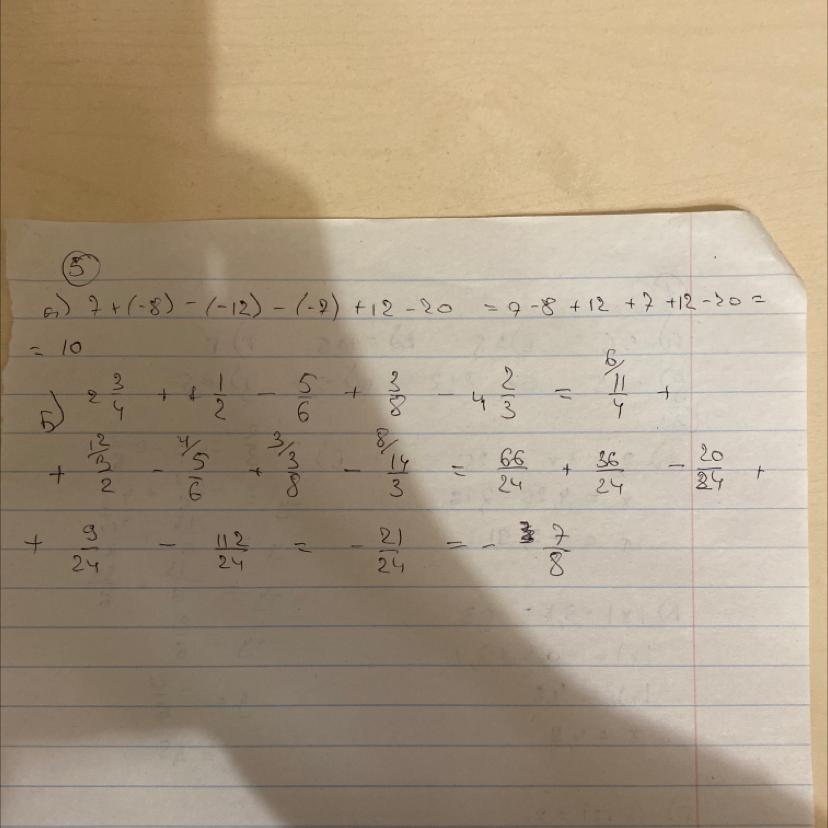 5
а) 7 + (-8) - (-12) - (-7) + 12 - 20 = 7 - 8 + 12 + 7 + 12 - 20 =
= 10
Б) 2 3/4 + 1 1/2 - 5/6 + 3/8 - 4 2/3 = 6/ 11/4 +
+ 12/ 3/2 - 4/ 5/6 + 3/ 3/8 - 8/ 14/3 = 66/24 + 36/24 - 20/24 +
+ 9/24 - 112/24 = - 21/24 = - 7/8